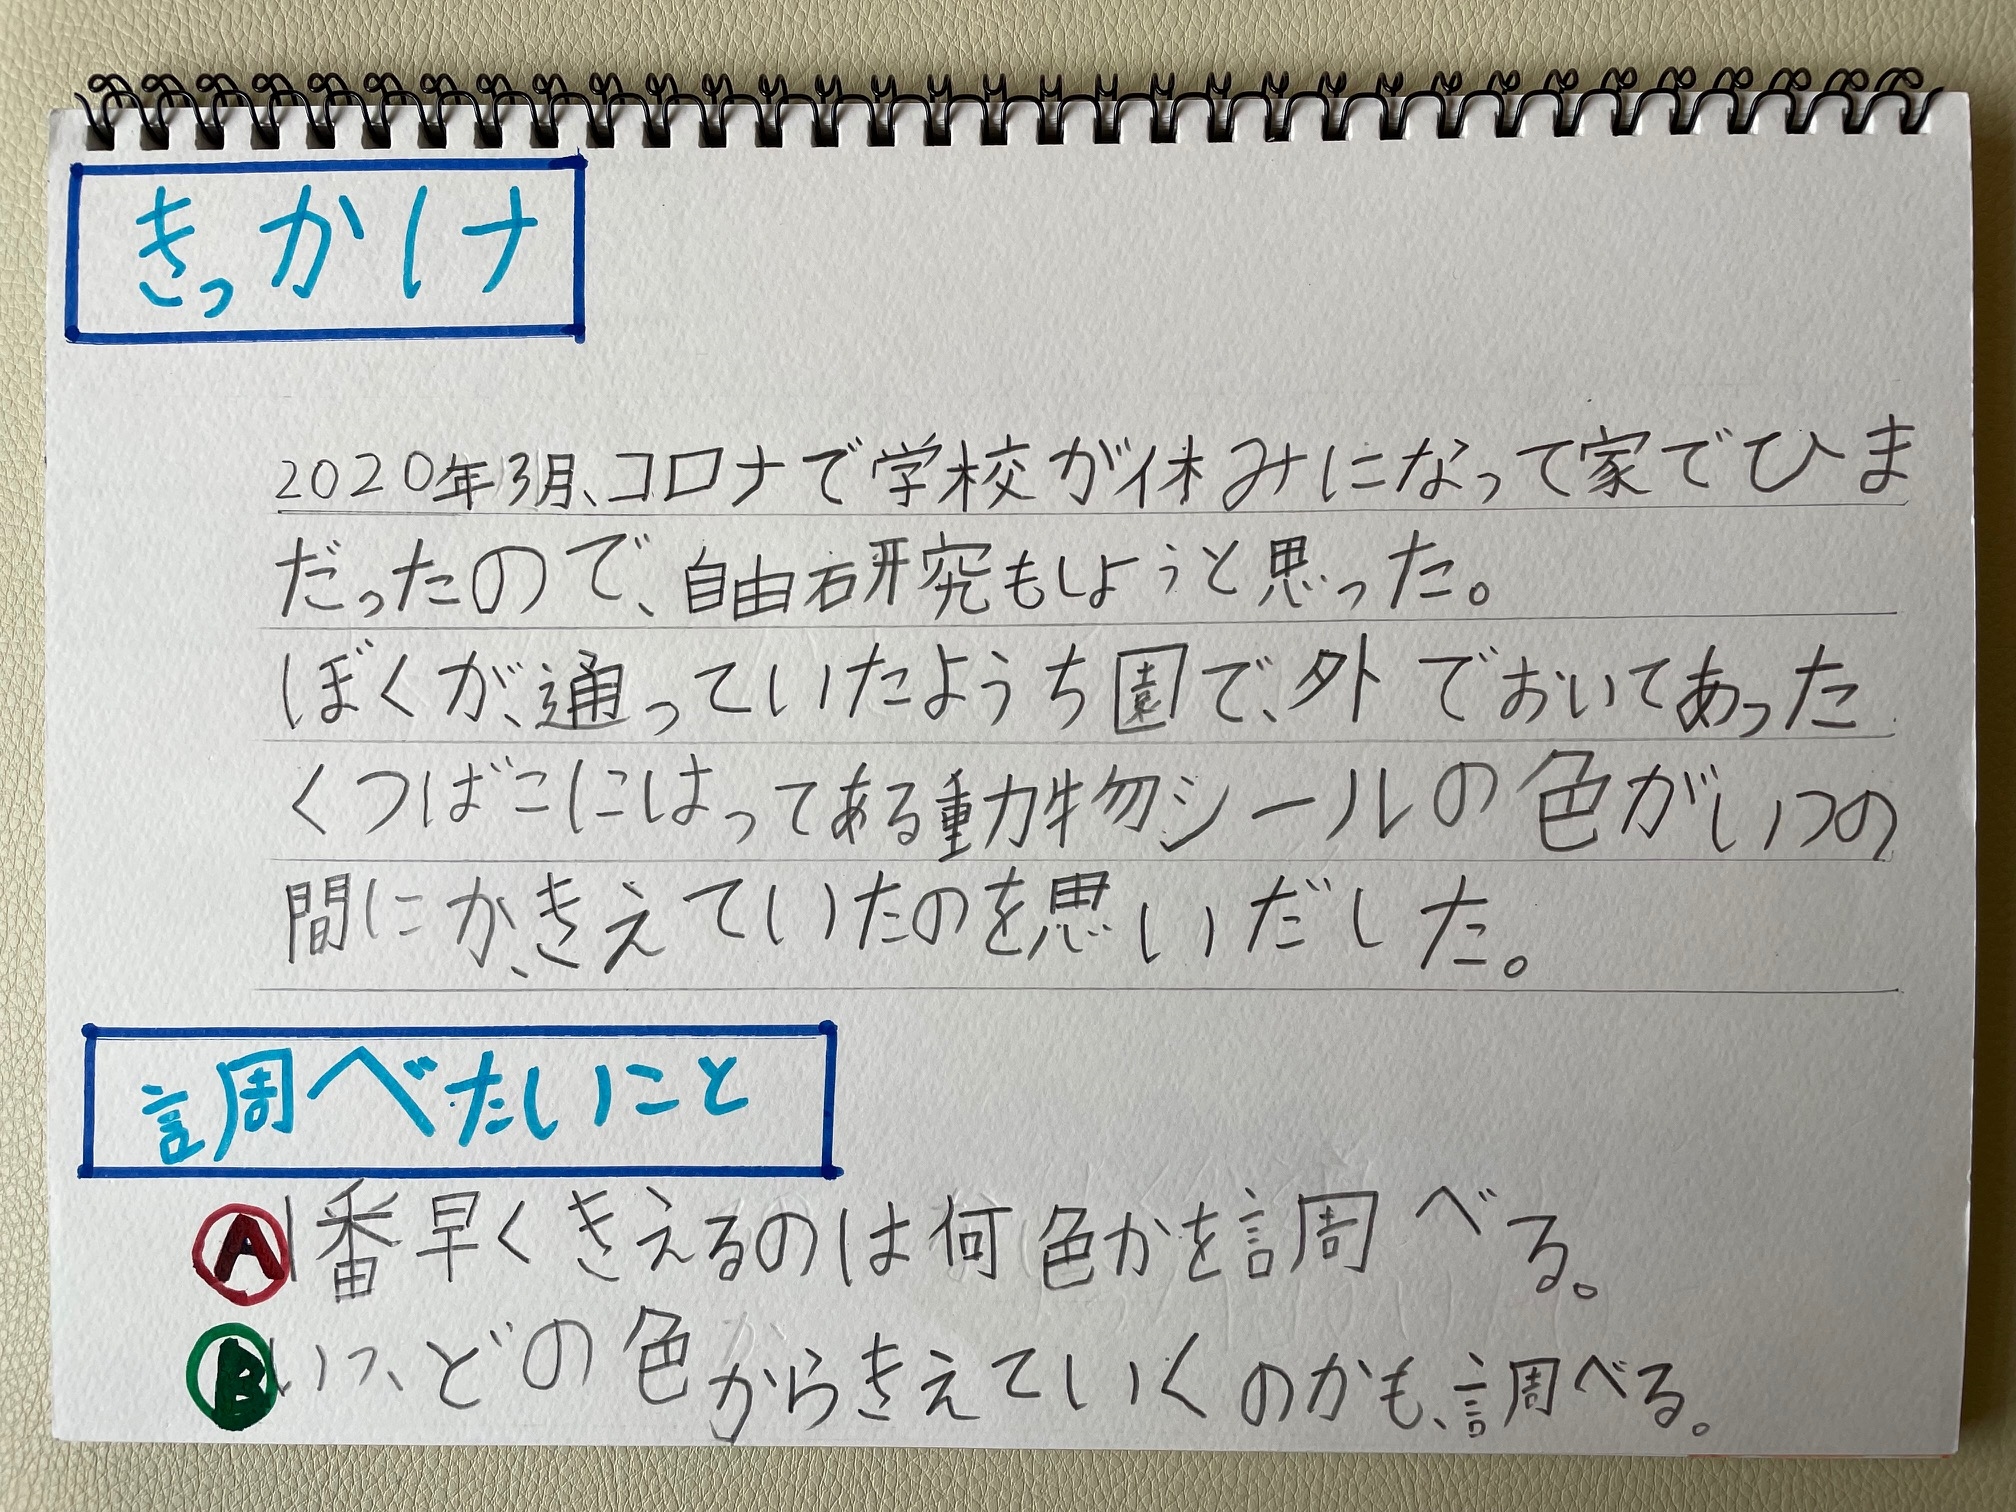 きっかけ
2020年3月、コロナで学校が休みになって家でひま
だったので、自由研究もしようと思った。
ぼくが、通っていたようち園で、外でおいてあった
くつばこにはってある動物シールの色がいつの
間にか、きえていたのを思いだした。
調べたいこと
A 1番早くきえるのは何色かを調べる。
B いつ、どの色からきえていくのかも、調べる。